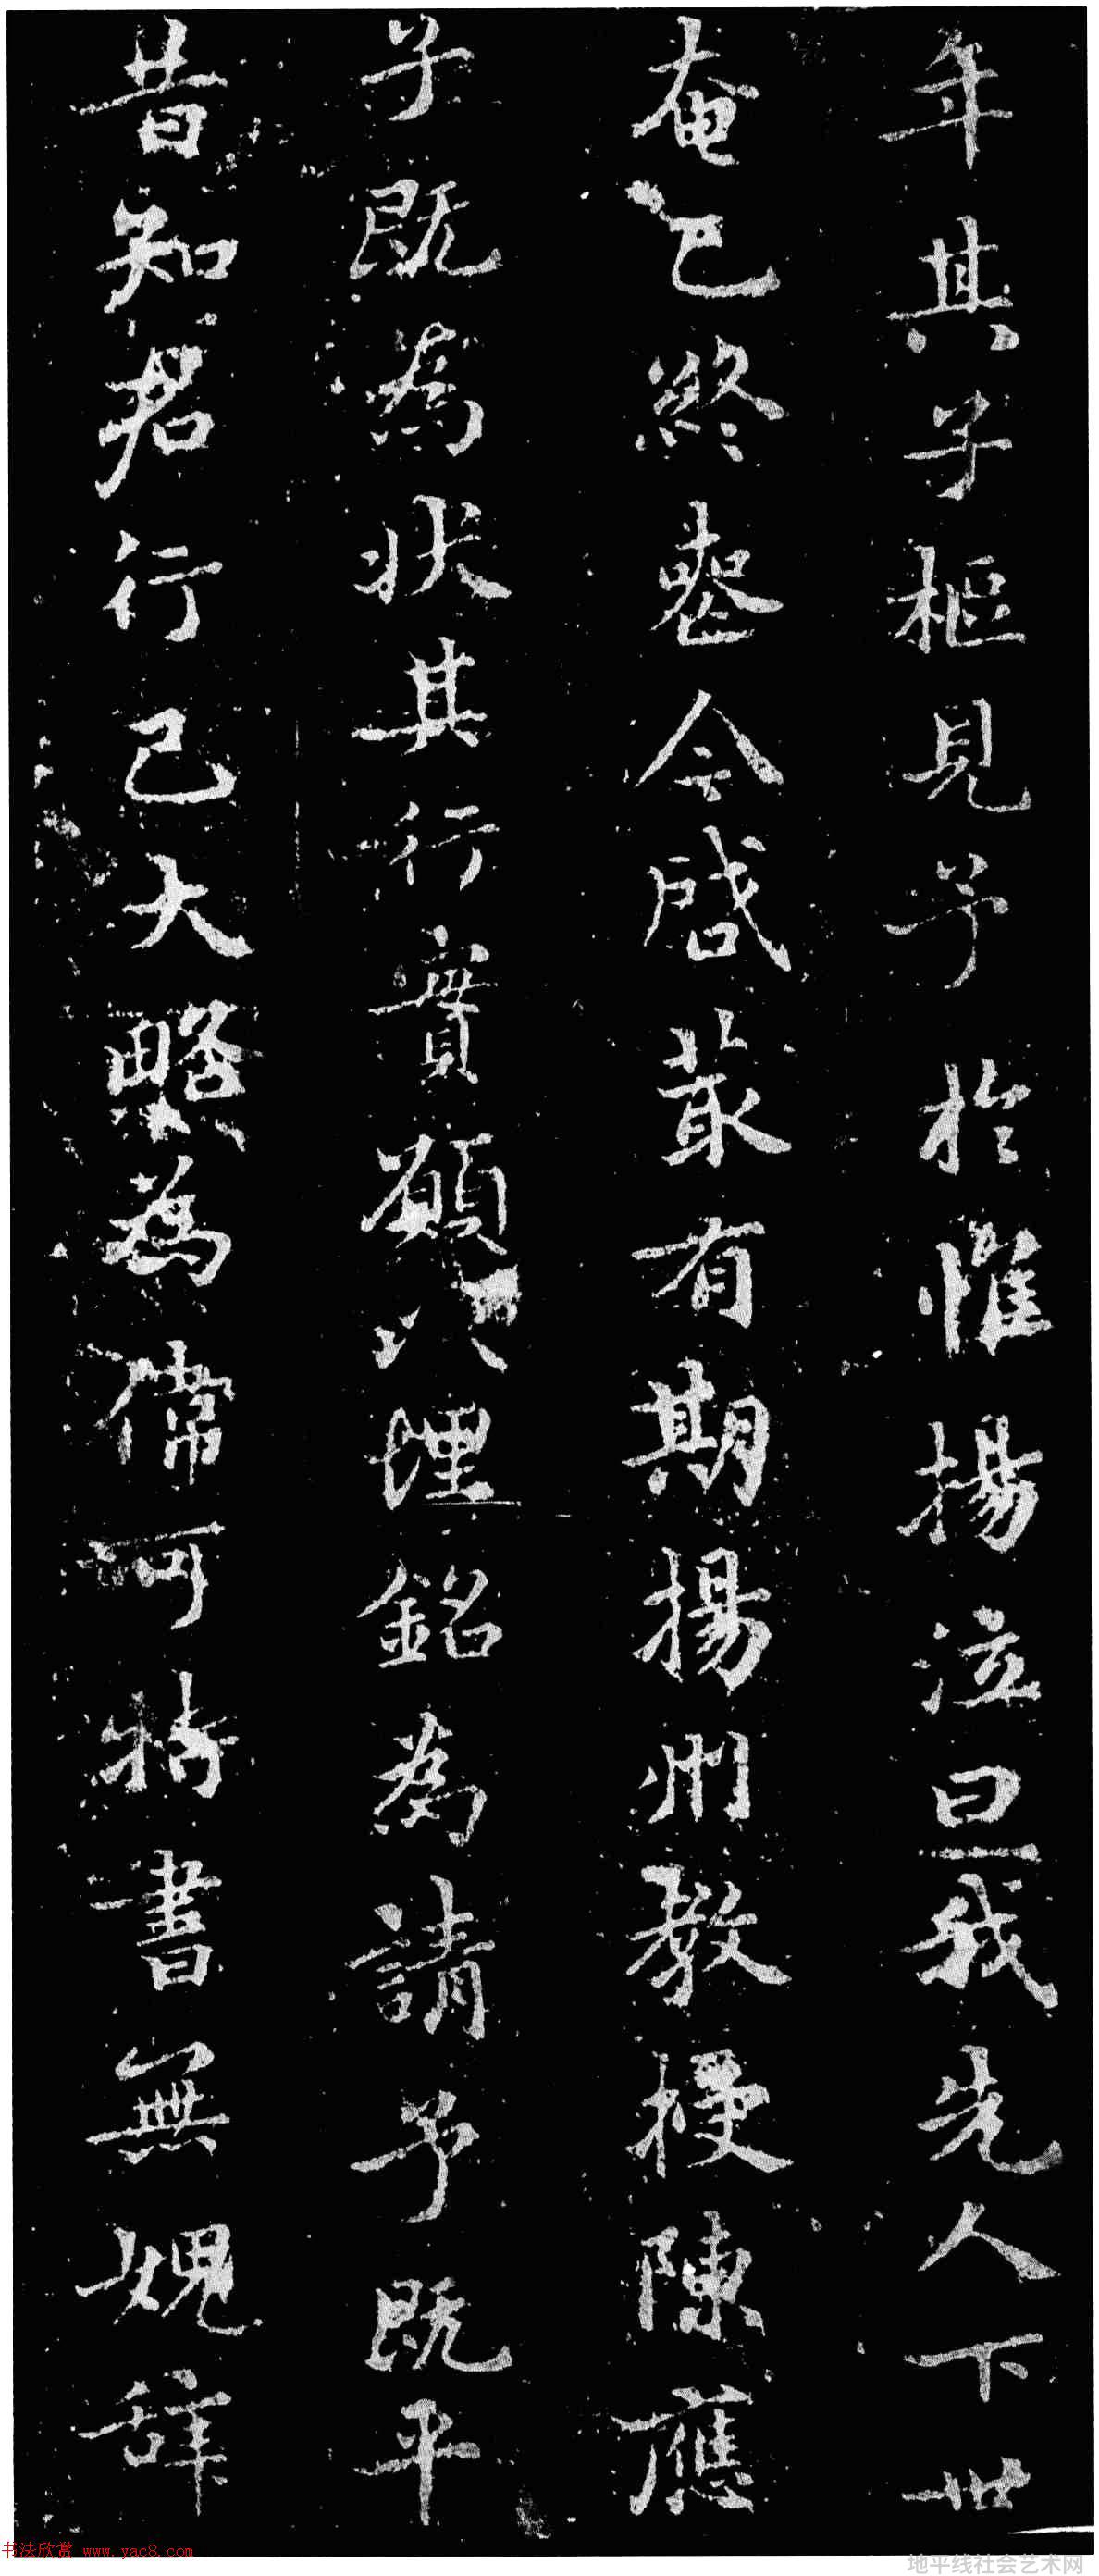 年其子樞見予於惟揚泣曰我先人下世
奄已終喪今啓叢有期揚州教授陳應
子既為狀其行實願以埋銘為請予既平
昔知君行己大略為儒可特書無愧辞
书法欣赏 www.yac8.com
地平线社会艺术网